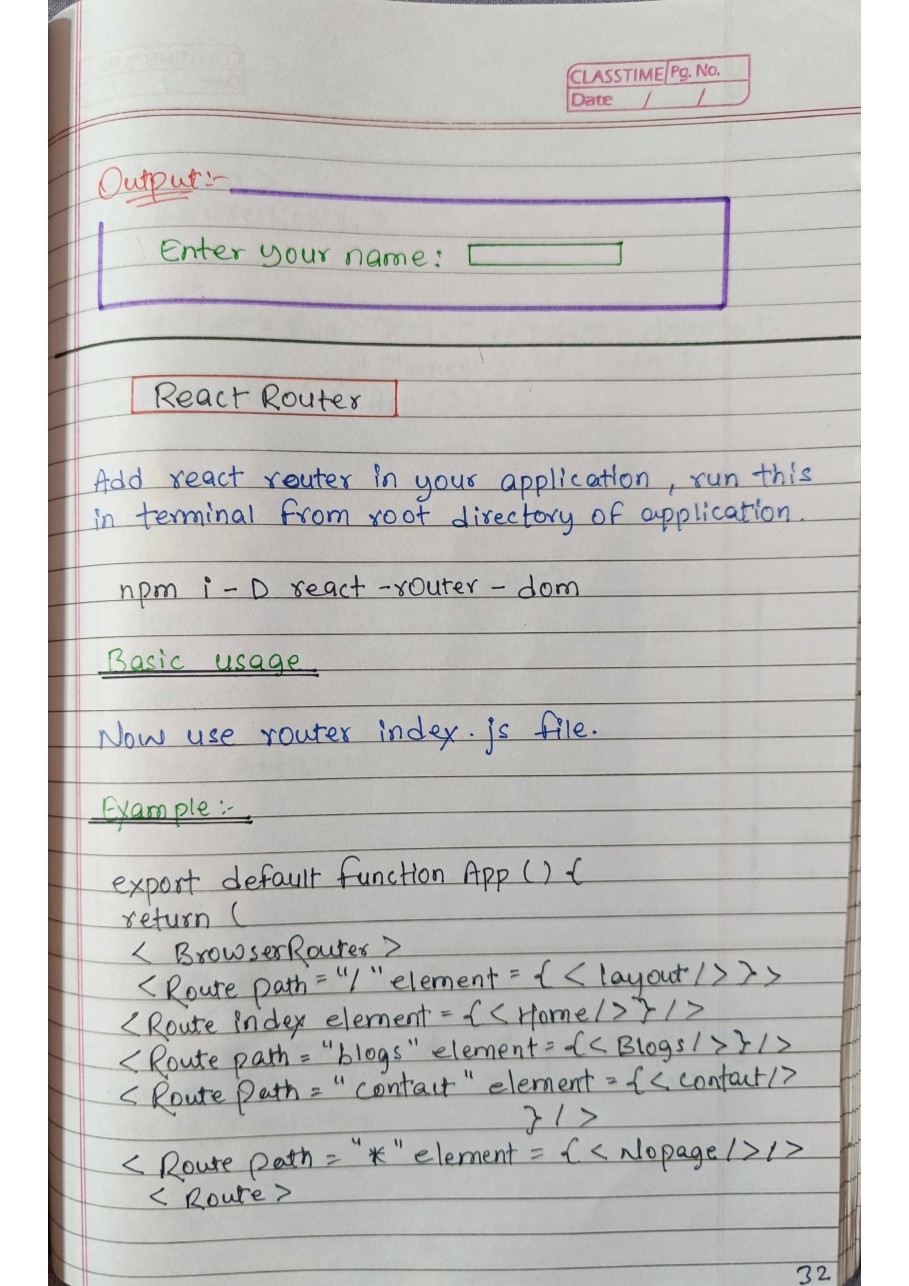 CLASSTIME Pg. No.
Date / /
Output:-
Enter your name:
React Router
Add react router in your application, run this
in terminal from root directory of application.
npm i -D react -router - dom
Basic usage
Now use router index.js file.
Example :-
export default function App () {
return (
< BrowserRouter >
< Route path = "/" element = { < layout /> } >
< Route index element = { < Home /> } />
< Route path = "blogs" element = { < Blogs /> } />
< Route Path = "contact" element = { < contact />
} />
< Route path = "*" element = { < Nopage /> />
< Route >
32